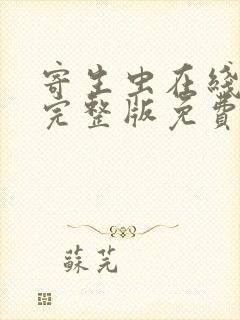 寄生虫在綫
完整版免費
蘇芫